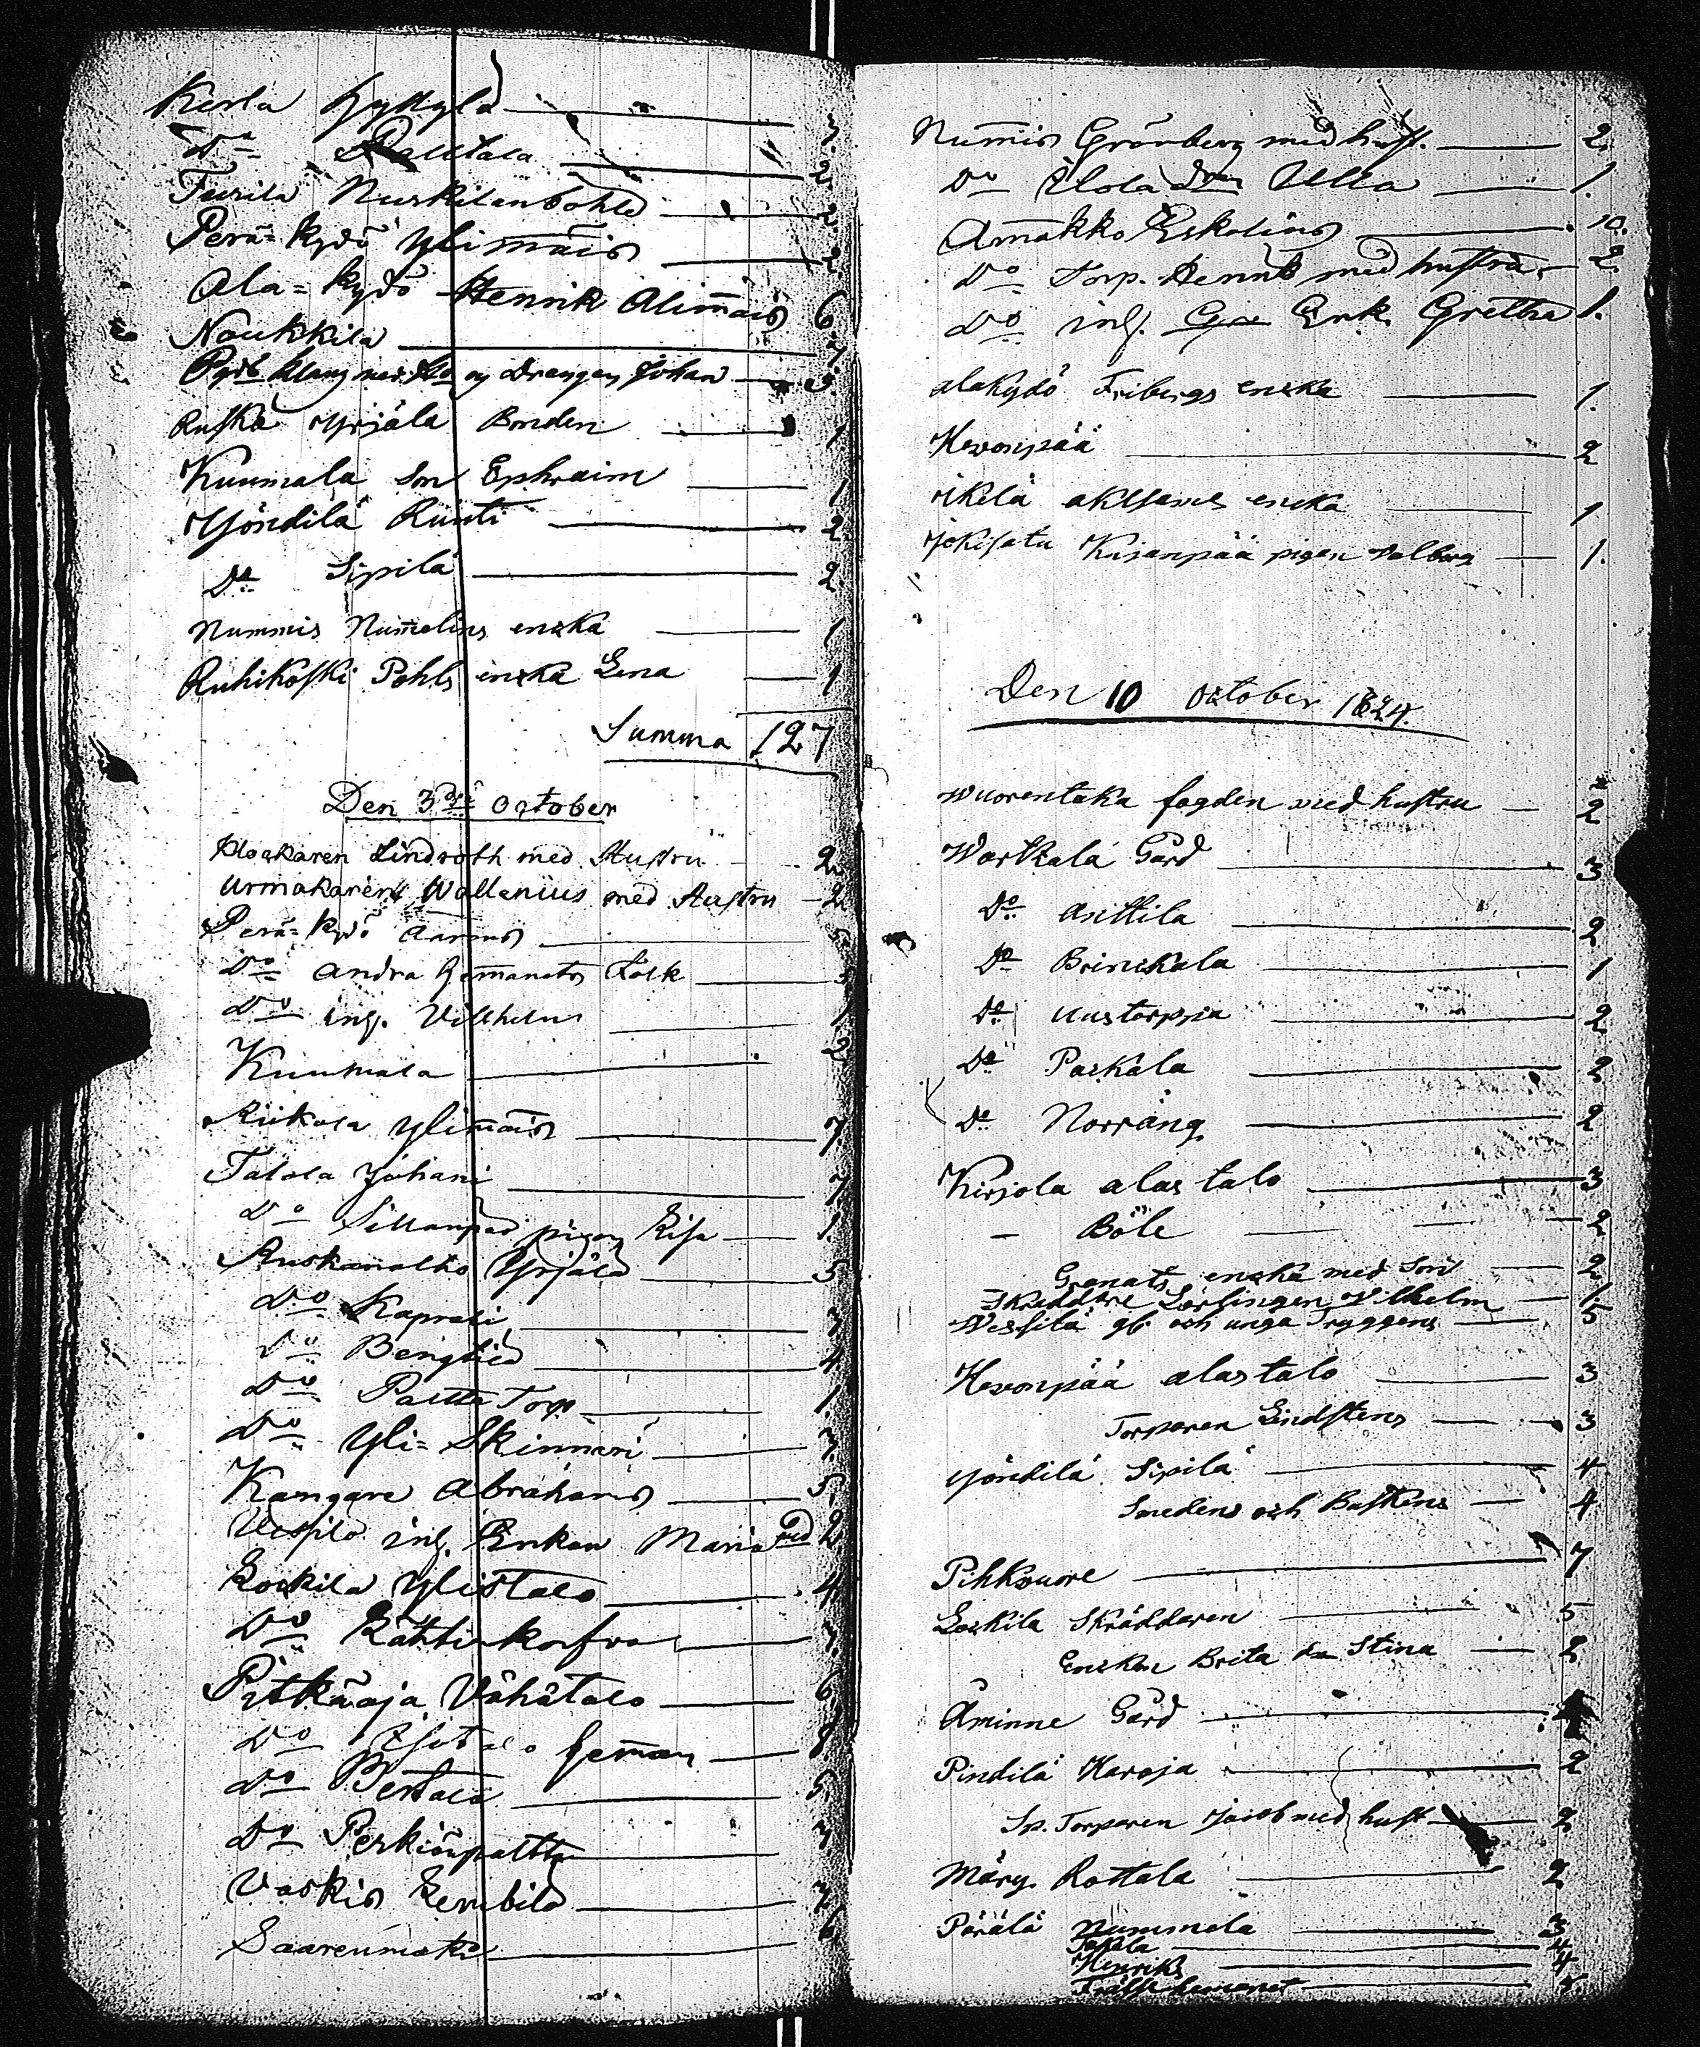 Kerla Kyttylä 3.
Do Pelttala 2
Teurila Nuskilanbohle 2
Perä=kydö Ylimäis 2
Ala=kydö Henrik Alimäis 6
Naukkila 7
och Drengen Johan 3.
Ruska Yrjälä Bonden 1
Kuumala Son Ephraim 1
Yöndilä Runti 2.
Do Sipilä 2.
Nummis Numelins enska 1
Ruhikoski Pohls enska Lena 1
Summa 127
Den 3dje October
Klockaren Lindroth med Hustru 2
Urmakaren Wallenius med Hustru 2
Perä=kydö Äärmis 5
Do Andra Hemanets Folk 3
Do inh. Vilhelm 1
Kuumala 2
Riikola Ylimäis 7.
Talola Juhani 7
Do Sillanpää pigan Lisa 1.
Ruskanalho Yrjälä 5
Do Kaprali 7
Do Bengtild 4
Do Paltta Torp 1.
Do Yli=Skinnari 7.
Kangare Abrahams 5.
inh. Enkan Maria 2
Koskila Ylistalo 4
Do 7.
Pitkäoja Vähätalo 6
Do Isotalo heman 8
Do Bertala 5
Do Perkiönpaltta 7
Vaskio Lembilä 7
Saarenmaki 6
Nummis Grönberg med hust. 2.
Do Ulla 1.
Amakko Eskolins 10.
Do Torp. Henrik med hustru 2.
Do inh. Enk. Gretha 1.
Alakydö Fribergs enska 1.
Hevonpää 2
Ikilä enska 1
Kisanpää pigan Valborg 1.
Den 10 October 1824.
Wuorentaka fogden med hustru 2
Wartkala Gård 3
Do Anttila 2
Do Brinkkala 1
Do Uustorppa 2
Do Paskala 2
Do Norräng 2
Kirjola alas talo 3
- Böle 2
Granats enska med Son 2
Skreddare Lärlingen Vilhelm 1
Wessilä gb och unga Tryggens 5
Hevonpää alastalo 3
Torparen Lindstens 3
Yöndilä Sipilä 4
Smedens och Baskens 4
Pihkvuore 7
Loskila Skräddaren 5
Enskan Brita Stina 2
Åminne Gård
Pindilä Haroja 2
Sp. Torparen Jacob med hust 2
Märy Rottala 2
Pärälä Nummela 3
Tapila 4
Henriks 4